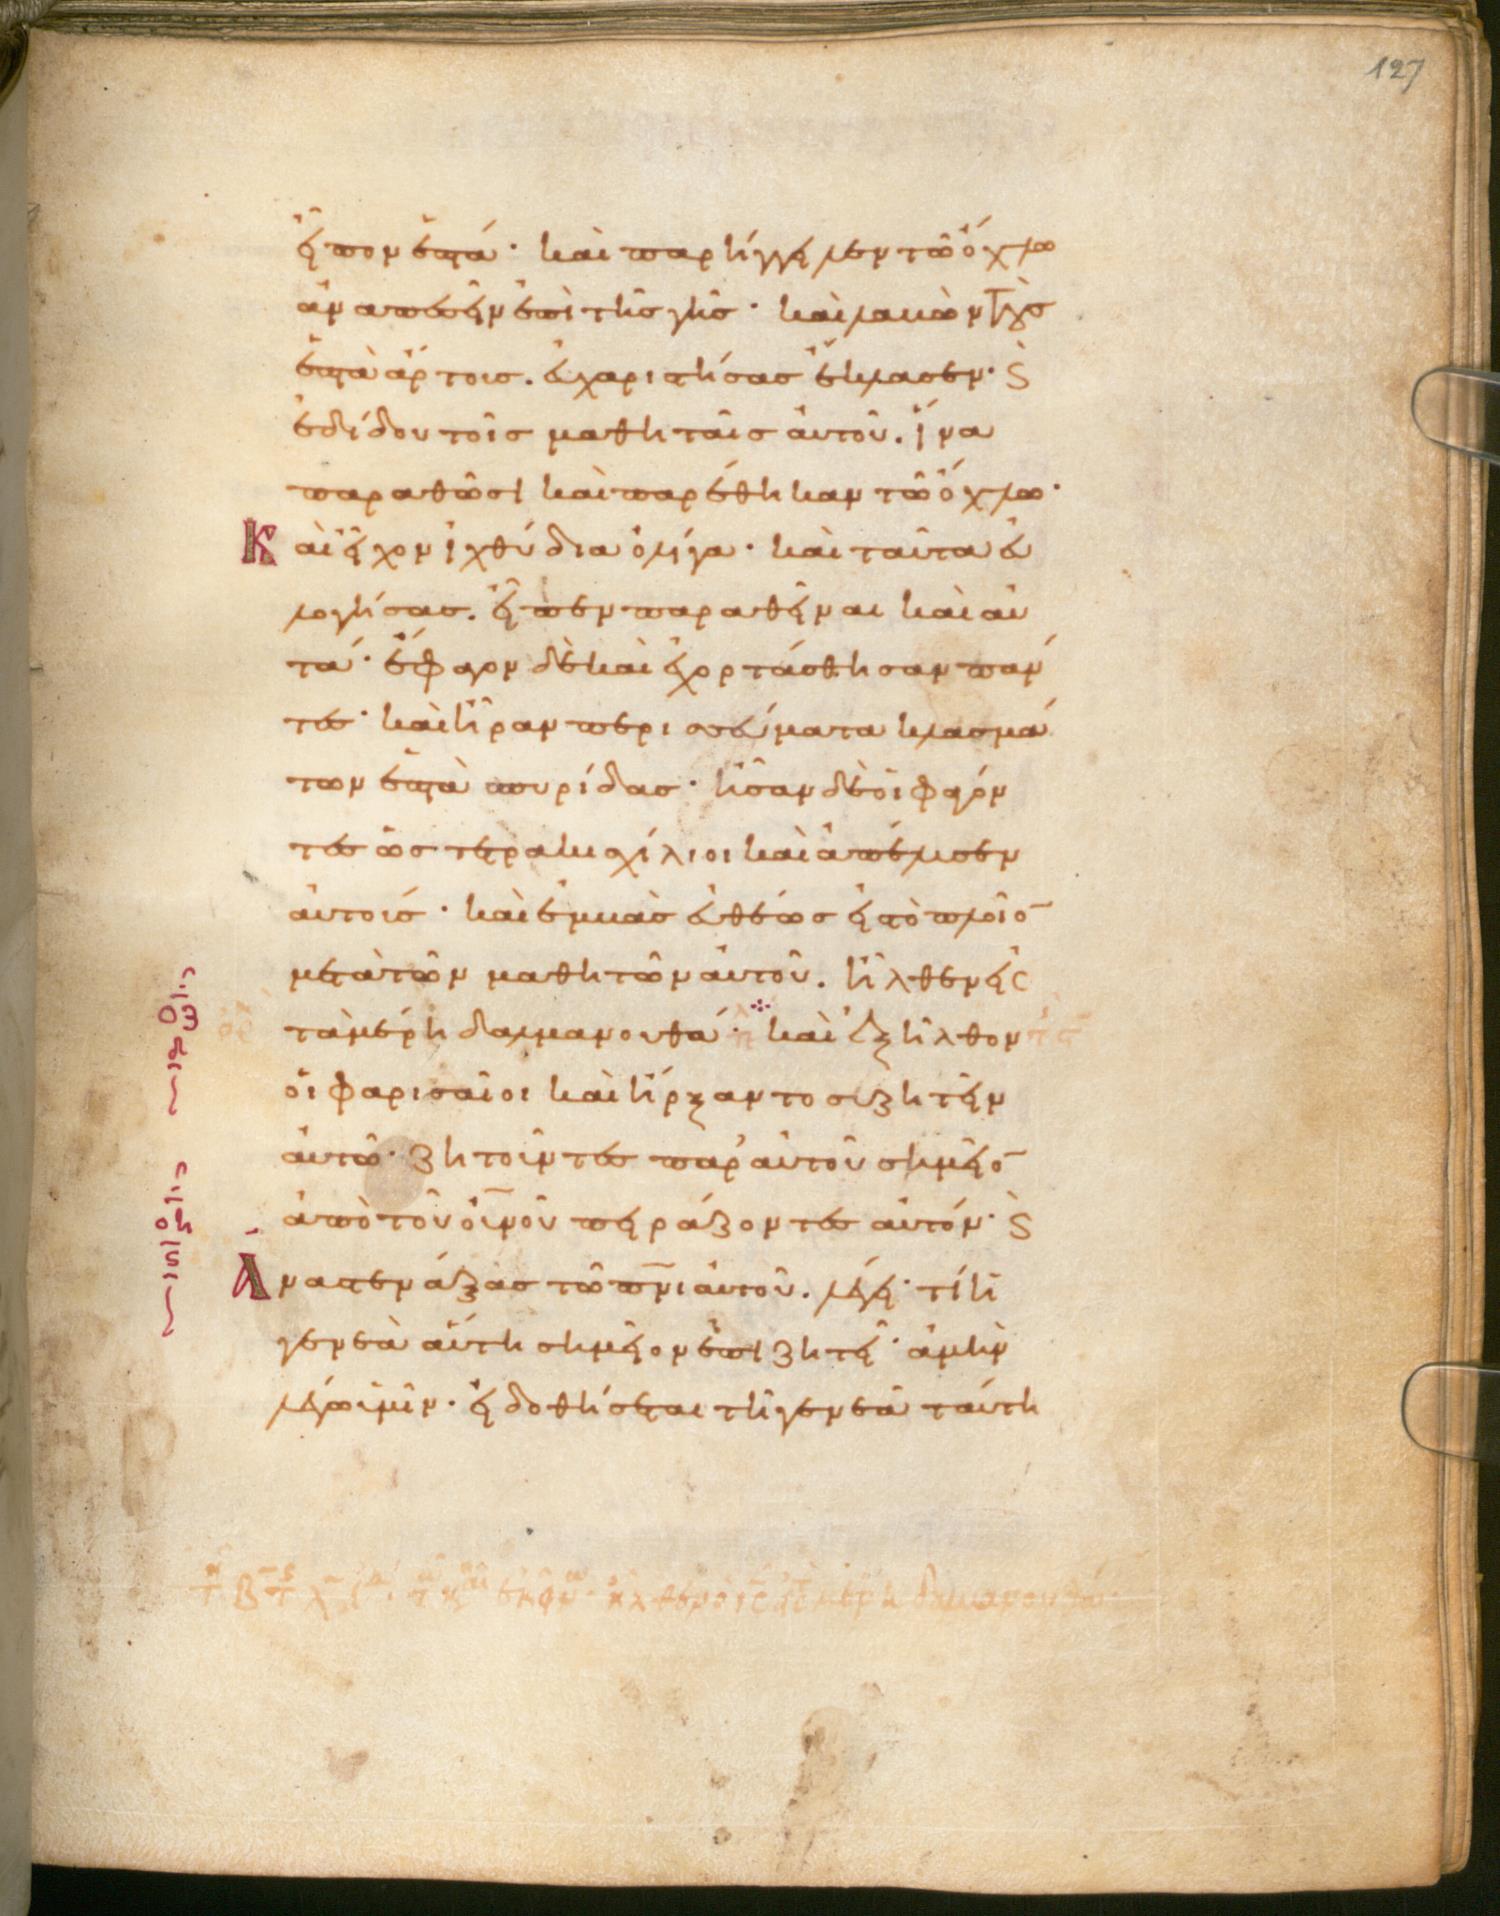 127
εἶπον ἑπτά· καὶ παρήγγειλεν τῶ ὄχλω
ἀναπεσεῖν ἐπὶ τῆς γῆς· καὶ λαβὼν τοὺς
ἑπτὰ ἄρτοις. εὐχαριστήσας ἔκλασεν· ϛ̀
ἐδίδου τοῖς μαθηταῖς αὐτοῦ. ἵνα
παραθῶσι καὶ παρέθηκαν τῶ ὄχλω·
Καὶ εἶχον ἰχθύδια ὀλίγα· καὶ ταῦτα εὐ
λογήσας. εἶπεν παραθεῖναι καὶ αὐ
τά· ἔφαγον δὲ καὶ ἐχορτάσθησαν πάν
τες· καὶ ἦραν περισσεύματα κλασμά
των ἑπτὰ σπυρίδας· ἦσαν δὲ οἱ φαγόν
τες ὡς τετρακισχίλιοι καὶ ἀπέλυσεν
αὐτούς· καὶ ἐμβὰς εὐθέως εἰς τὸ πλοῖο̄
μετὰ τῶν μαθητῶν αὐτοῦ. ἦλθεν εἰς
τὰ μέρη δαλμανουθά· καὶ ἐξῆλθον
οἱ φαρισαῖοι καὶ ἤρξαντο συζητεῖν
αὐτῶ· ζητοῦντες παρ' αὐτοῦ σημεῖο̄
ἀπὸ τοῦ οὐ̅νοῦ πειράζοντες αὐτόν· ϛ̀
Ἀναστενάξας τῶ πν̅ι αὐτοῦ. λέγει· τί ἡ
γενεὰ αὕτη σημεῖον ἐπιζητεῖ· ἀμὴν
λέγω ὑμῖν· εἰ δοθήσεται τῆ γενεᾶ ταύτη